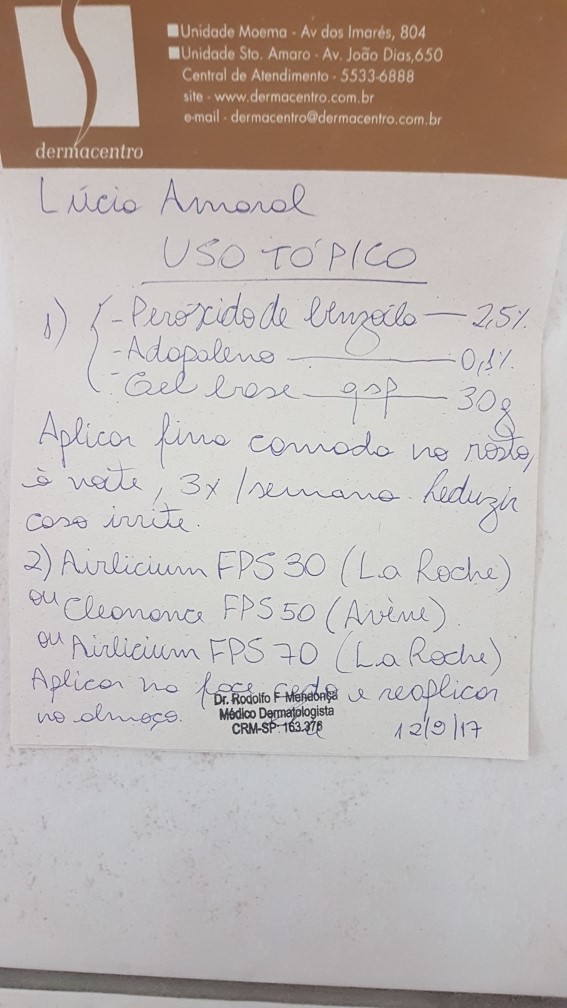 ■Unidade Moema - Av dos Imarés, 804
■Unidade Sto. Amaro - Av. João Dias,650
Central de Atendimento - 5533-6888
site - www.dermacentro.com.br
e-mail - dermacentro@dermacentro.com.br
dermacentro
Lúcio Amaral
USO TÓPICO
1) { - Peróxido de benzoíla — 2,5%
- Adapaleno — 0,1%
- Gel base — qsp — 30g
Aplicar fina camada no rosto,
à noite, 3x/semana. Reduzir
caso irrite.
2) Airlicium FPS 30 (La Roche)
ou Cleanance FPS 50 (Avène).
ou Airlicium FPS 70 (La Roche)
Aplicar na face cedo e reaplicar
no almoço.
Dr. Rodolfo F Mendonça
Médico Dermatologista
CRM-SP: 163.376
12/9/17